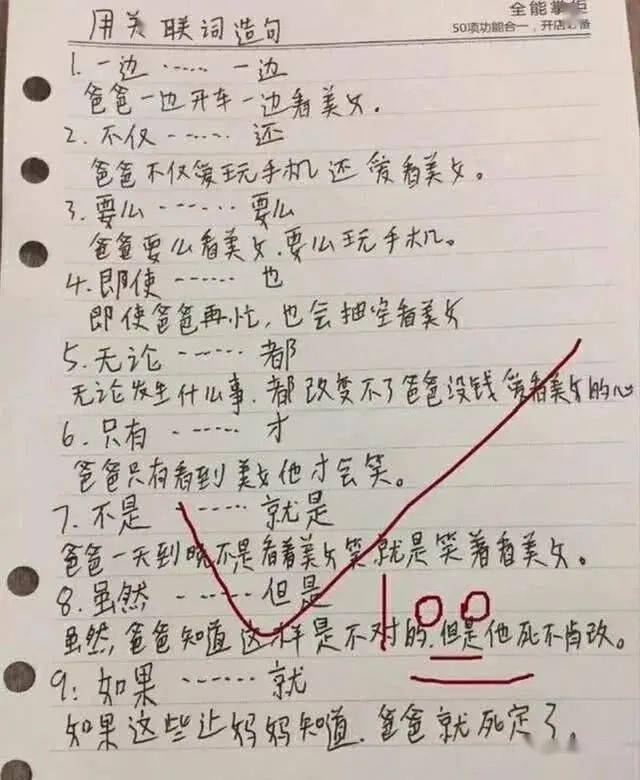 全能掌柜
50项功能合一，开店必备
用关联词造句
1. 一边 ······ 一边
爸爸一边开车一边看美女.
2. 不仅 ······ 还
爸爸不仅爱玩手机还爱看美女。
3. 要么 ······ 要么
爸爸要么看美女.要么玩手机。
4. 即使 ······ 也
即使爸爸再忙,也会抽空看美女
5. 无论 ······ 都
无论发生什么事.都改变不了爸爸没钱爱看美女的心
6. 只有 ······ 才
爸爸只有看到美女他才会笑。
7. 不是 ······ 就是
爸爸一天到晚不是看着美女笑就是笑着看美女。
8. 虽然 ······ 但是
虽然,爸爸知道这样是不对的.但是他死不肯改。
100
9: 如果 ······ 就
如果这些让妈妈知道.爸爸就死定了。